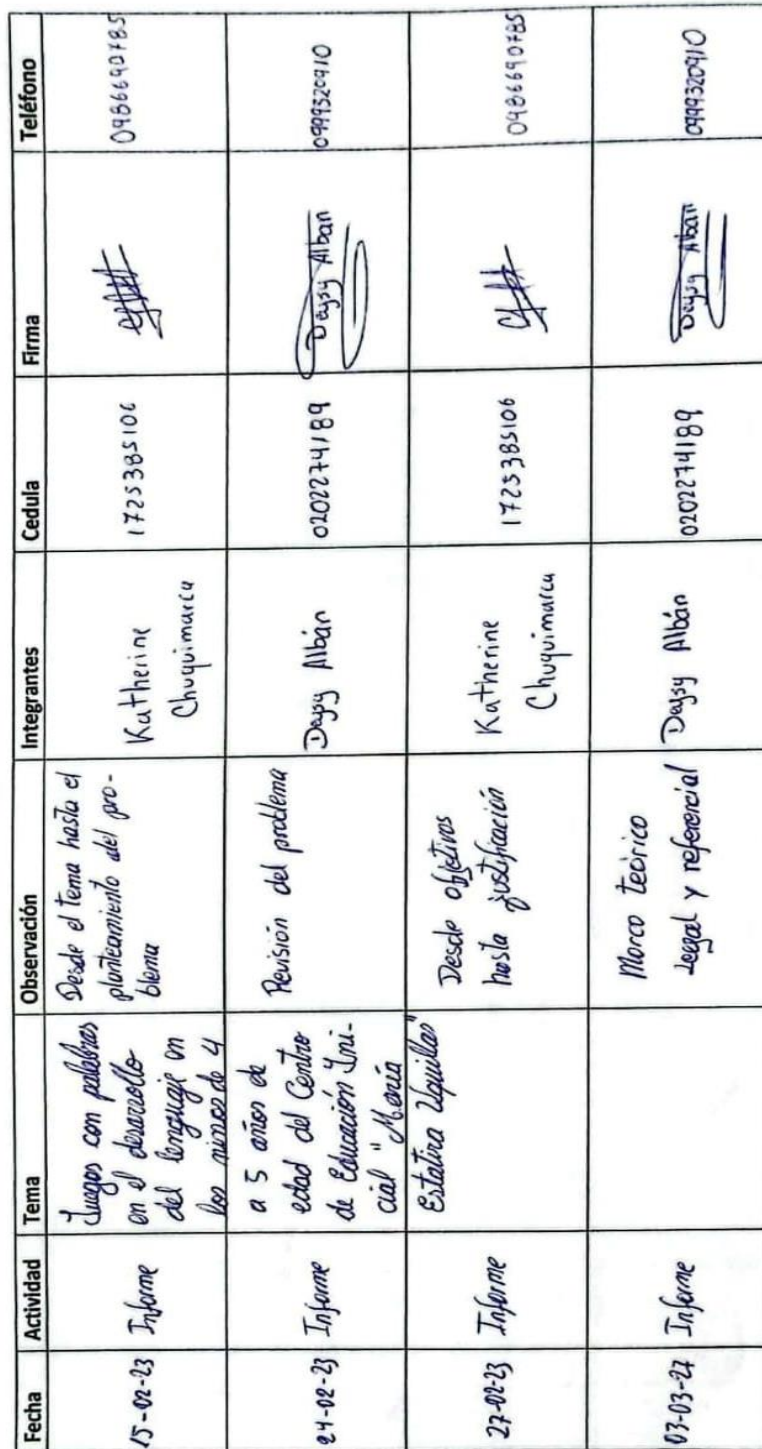 Fecha Actividad Tema Observación Integrantes Cedula Firma Teléfono
15-02-23 Informe
Juegos con palabras
en el desarrollo
del lenguaje en
los niños de 4
Desde el tema hasta el
planteamiento del pro-
blema
Katherine
Chuquimarca
1725385106
0986690785
24-02-23 Informe
a 5 años de
edad del Centro
de Educación Ini-
cial "María
Revisión del problema
Deysy Albán
0202274189
Deysy Alban
0999320910
27-02-23 Informe
Estatira Uquillas"
Desde objetivos
hasta justificación
Katherine
Chuquimarca
1725385106
0986690785
07-03-27 Informe
Marco teórico
legal y referencial
Deysy Albán
0202274189
Deysy Alban
0999320910